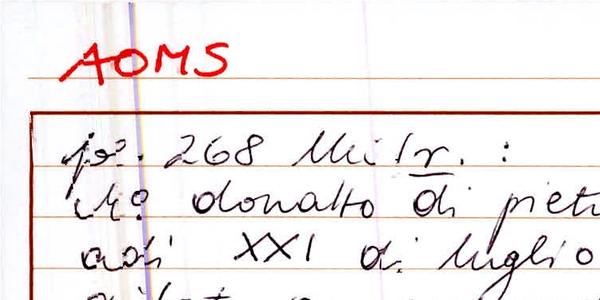 AOMS
fo. 268 
Mo donatto di piet
adi XXI di luglio